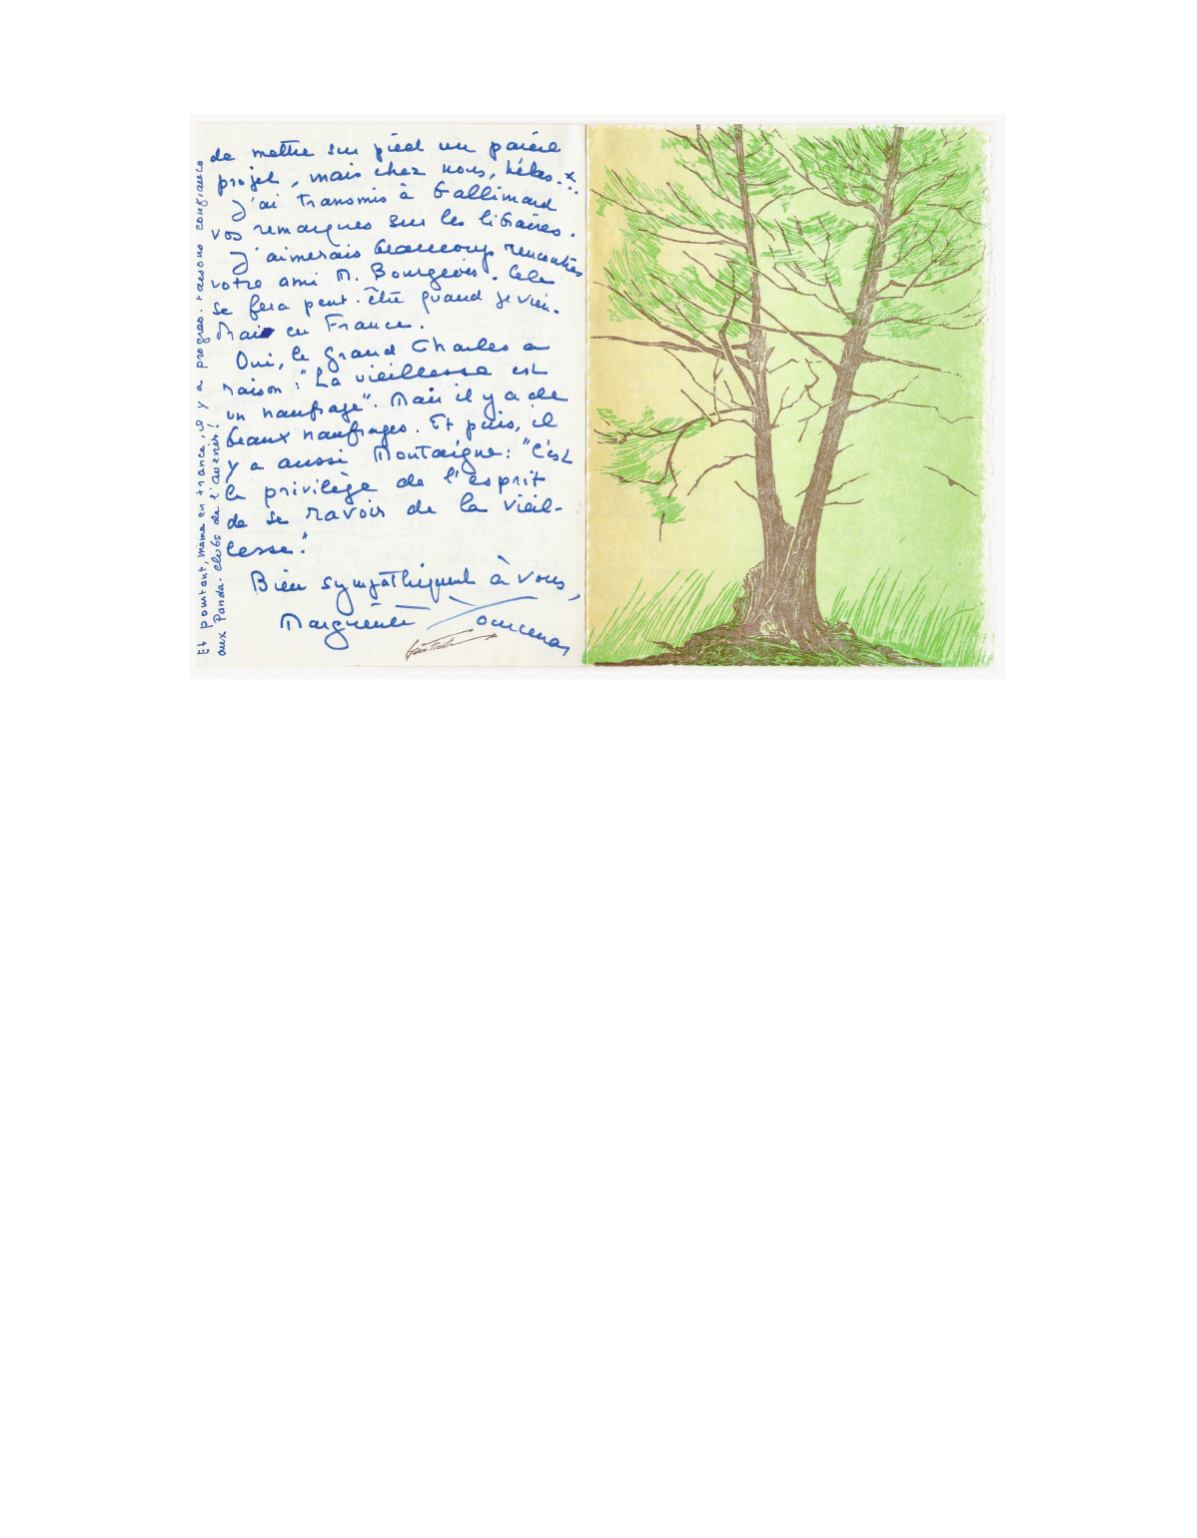 de mettre sur pied un pareil
projet, mais chez nous, hélas...*
J'ai transmis à Gallimard
vos remarques sur les libraires.
J'aimerais beaucoup rencontrer
votre ami M. Bourgeois. Cela
se fera peut-être quand je vien-
drai en France.
Oui, le grand Charles a
raison : "La vieillesse est
un naufrage". Mais il y a de
beaux naufrages. Et puis, il
y a aussi Montaigne : "C'est
le privilège de l'esprit
de se ravoir de la vieil-
lesse."
Bien sympathiquement à vous,
Marguerite Yourcenar
Et pourtant, même en France, il y a progrès. Faisons confiance
aux Panda-Clubs de l'avenir !